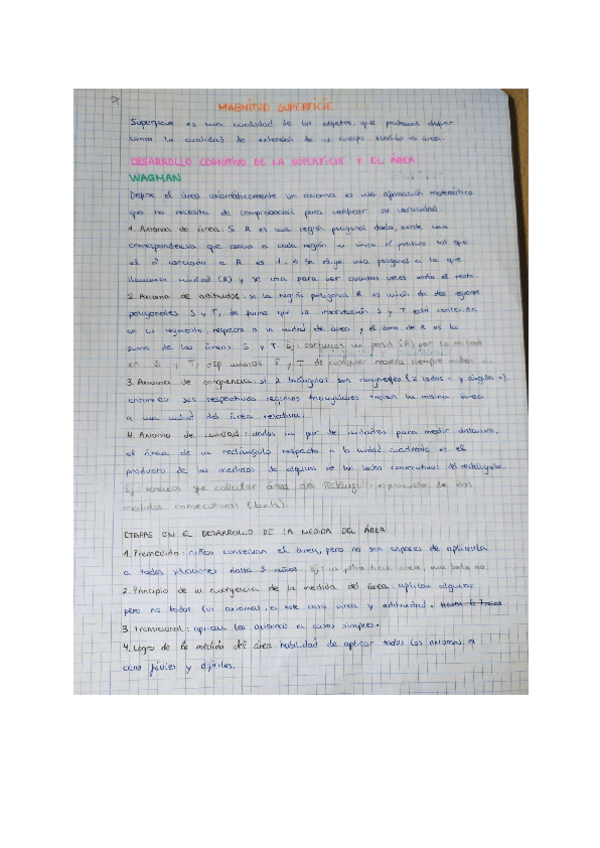 MAGNITUD SUPERFICIE
Superficie es una cualidad de los objetos, que podemos definir
como la cualidad de extensión de un cuerpo medida es área.
DESARROLLO COGNITIVO DE LA SUPERFICIE Y EL ÁREA
WAGMAN
Define el área axiomáticamente un axioma es una afirmación matemática
que no necesita de comprobación para verificar su veracidad.
1. Axioma de área. Si R es una región poligonal dada, existe una
correspondencia que asocia a cada región un único nº positivo tal que
el nº asociado a R es 1. Se elige una poligonal a la que
llamamos unidad (R) y se usa para ver cuantas veces entra el resto.
2. Axioma de aditividad: si la región poligonal R es unión de dos regiones
poligonales S y T, de forma que la intersección S y T está contenida
en un segmento, respecto a la unidad de área, el área de R es la
suma de las áreas S y T. Ej: cortamos un post it (R) por la mitad
en S y T, de cualquier manera siempre
3. Axioma de congruencia: si 2 triángulos son congruentes (2 lados = y ángulo =)
entonces sus respectivas regiones triangulares tienen la misma área
a una unidad del área relativa.
4. Axioma de unidad: dados un par de unidades para medir distancias,
el área de un rectángulo respecto a la unidad cuadrada es el
producto de las medidas de alguno de los lados consecutivos del rectángulo.
Ej: tenemos que calcular área del rectángulo producto de sus
medidas consecutivas (b.h).
ETAPAS EN EL DESARROLLO DE LA MEDIDA DEL ÁREA
1. Premedida: niños conservan el área, pero no son capaces de aplicarla
a todas situaciones hasta 5 años. Ej: un folio tiene área, una bola no.
2. Principio de la emergencia de la medida del área: aplican algunos
pero no todos los axiomas, en este caso área y aditividad.
3. Transicional: aplican los axiomas a casos simples.
4. Logro de la medida del área: habilidad de aplicar todos los axiomas a
casos fáciles y difíciles.